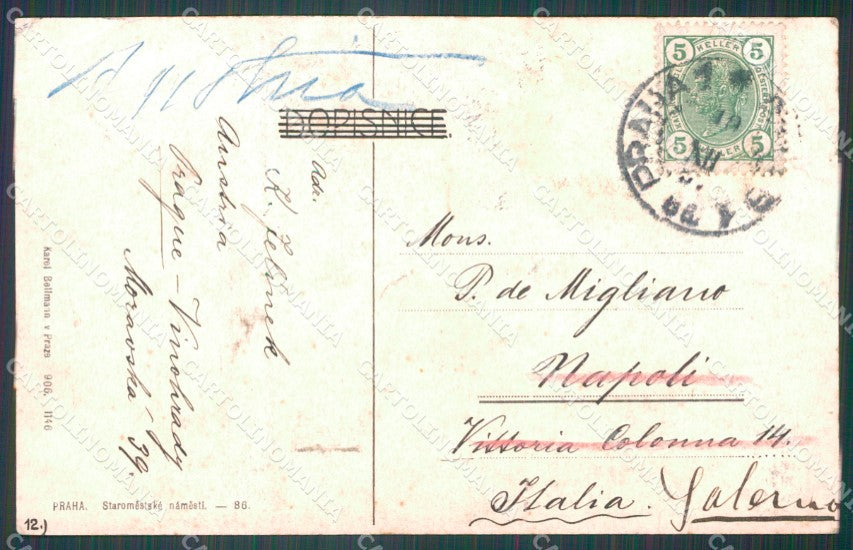 Austria
DOPISNICE.
Adr.
K. Jelínek
Austria
Prague - Vinohrady
Moravská 39.
Karel Bellmann v Praze 906. 1146
PRAHA. Staroměstské náměstí. — 86.
12.)
5 HELLER 5
5 HELLER 5
PRAHA 1
XII
Mons.
P. de Migliano
Napoli
Vittoria Colonna 14.
Italia. Salerno
CARTOLINOMANIA